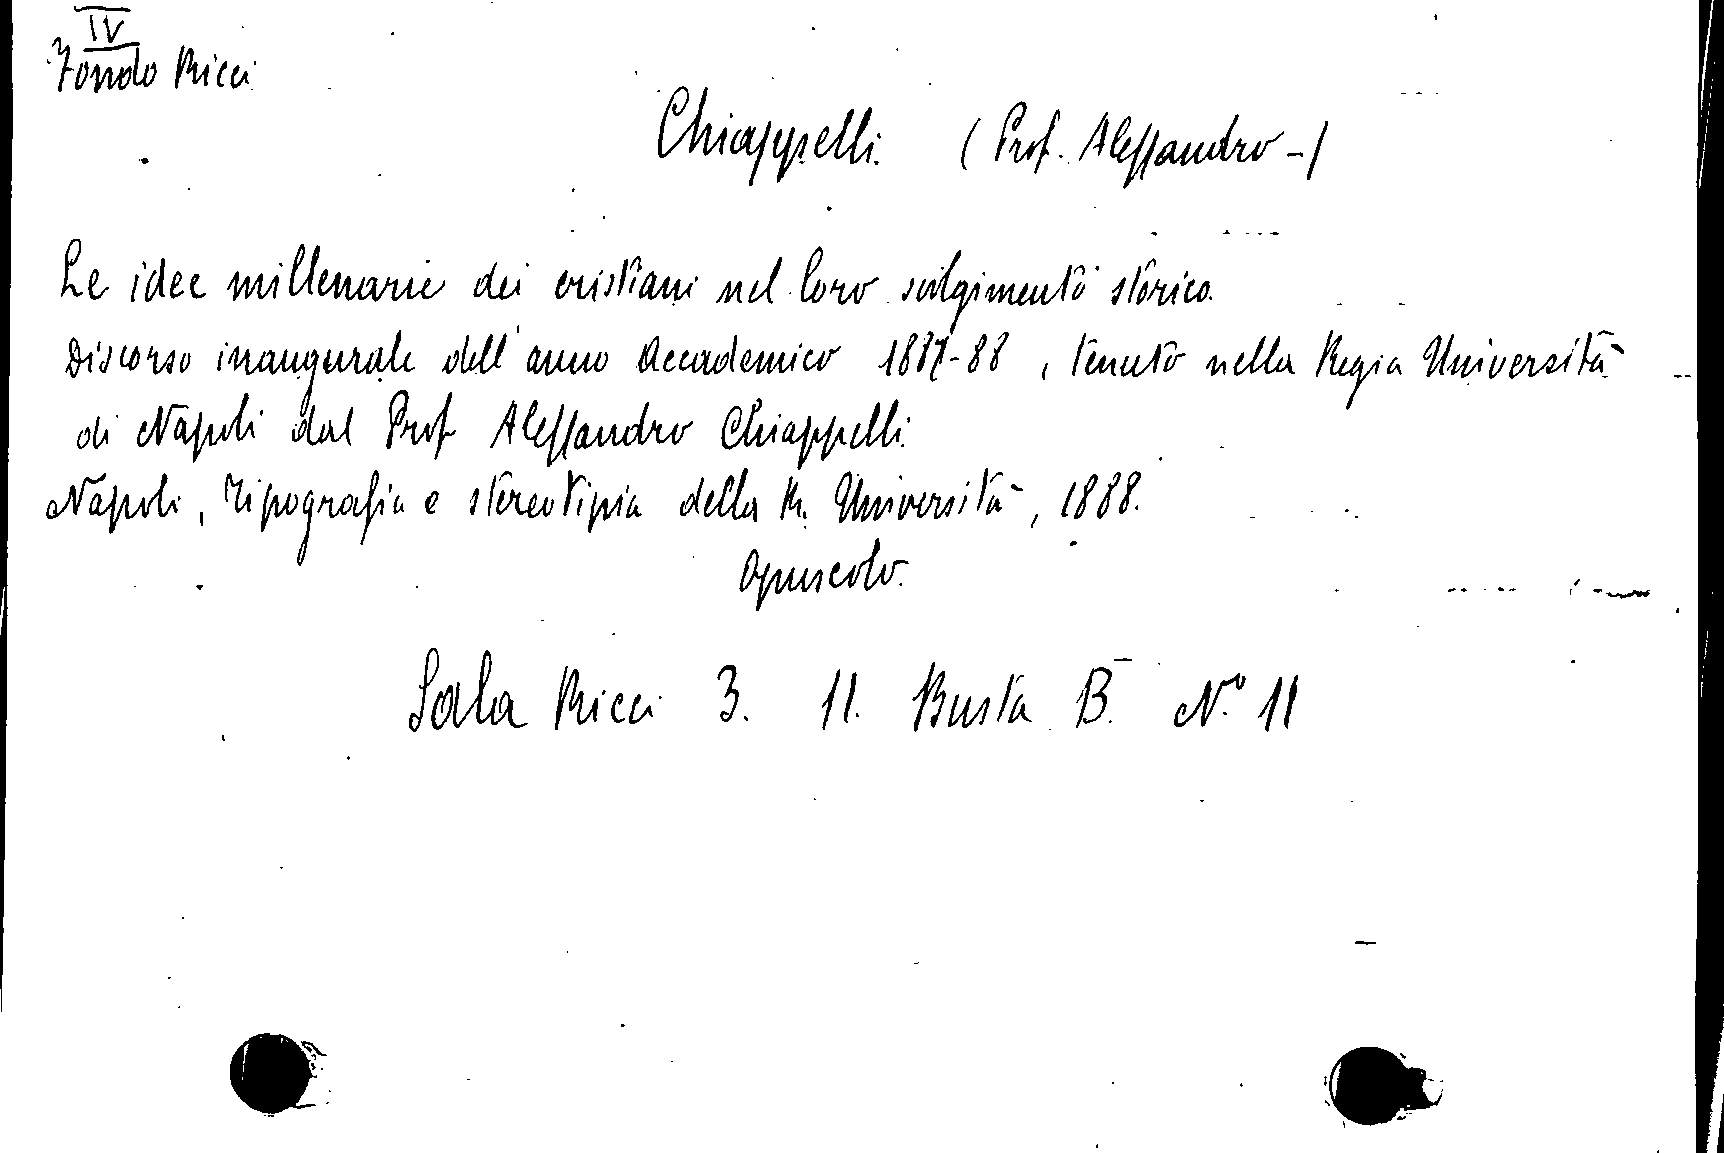 IV
Fondo Ricci
Chiappelli. (Prof. Alessandro -)
Le idee millenarie dei cristiani nel loro svolgimento storico.
Discorso inaugurale dell'anno Accademico 1887-88, tenuto nella Regia Università
di Napoli dal Prof Alessandro Chiappelli.
Napoli, Tipografia e stereotipia della R. Università, 1888.
Opuscolo.
Sala Ricci 3. 11. Busta B. N.o 11